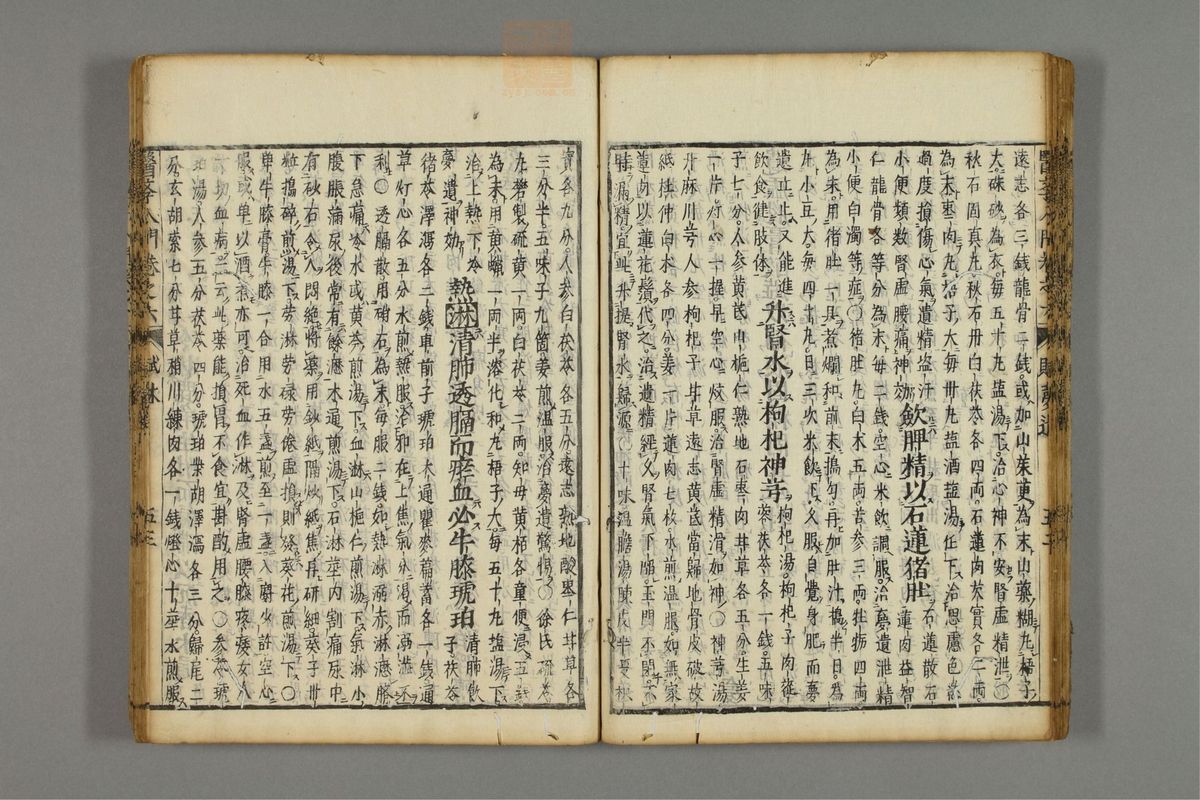 遠志各三錢龍骨二錢或加山茱萸為末山藥糊九梧子
大硃砂為衣每五十九盐湯下治心神不安腎虛精泄
秋石固真九秋石丹白茯苓各四兩石蓮肉芡實各二兩
為末棗肉九梧子大每卅九盐酒盐湯任下治思慮色慾
過度損傷心氣遺精盜汗
小便頻數腎虛腰痛神効歛脾精以石蓮猪肚
石蓮散石蓮肉益智仁龍骨各等分為末每二錢空心米飲調服治夢遺泄精
小便白濁等症猪肚九白术五兩苦参三兩牡蛎四兩
為末用猪肚一具煮爛和前末搗勻再加肚汁搗半日為
九小豆大每四十九日三次米飲下久服自覺身肥而夢
遺止又能進
飲食健肢体升腎水以枸杞神芎
枸杞湯枸杞子肉蓯蓉茯苓各一錢五味
子七分人参黃芪山梔仁熟地石棗肉甘草各五分生姜
一片灯心一撮早空心服治腎虛精滑如神神芎湯
升麻川芎人参枸杞子甘草遠志黃芪當歸地骨皮破故
紙杜仲白术各四分姜一片蓮肉七枚水煎温服如無家
蓮肉以蓮花鬚代之治遺精經久腎氣下陷玉門不閉不
時漏精宜此升提腎水歸源十味温膽湯
實各九分人参白茯苓各五分遠志熟地酸棗仁甘草各
三分半五味子九箇姜煎温服治夢遺驚惕徐氏硫苓
九礬製硫黃一兩白茯苓二兩知母黃栢各童便浸五錢
為末用黃蠟一兩半溶化和九梧子大每五十九塩湯下
治上熱下冷
夢遺神効熱淋清肺透膈而瘀血必牛膝琥珀
清肺飲子茯苓
猪苓澤瀉各二錢車前子琥珀木通瞿麥萹蓄各一錢通
草灯心各五分水煎熱服治邪在上焦氣分渴而溺澁不
利透膈散用硝石為末每服二錢如熱淋溺赤淋瀝臍
下急痛冷水或黃芩煎湯下血淋山梔仁煎湯下氣淋小
腹脹滿尿後常有餘瀝木通煎湯下石淋莖內割痛尿中
有砂石令人悶絶將藥用鈔紙隔炊紙焦再研細葵子卅
粒搗碎煎湯下勞淋勞碌勞倦虛損則發葵花煎湯下
單牛膝膏牛膝一合用水五盞煎至一盞入麝少許空心
服或單以酒煮亦可治死血作淋及腎虛腰膝疼痠女人
一切血病云此藥能損胃不食宜斟酌用之参苓琥
珀湯人参五分茯苓四分琥珀柴胡澤瀉各三分歸尾二
分玄胡索七分甘草稍川練肉各一錢燈心十莖水煎服